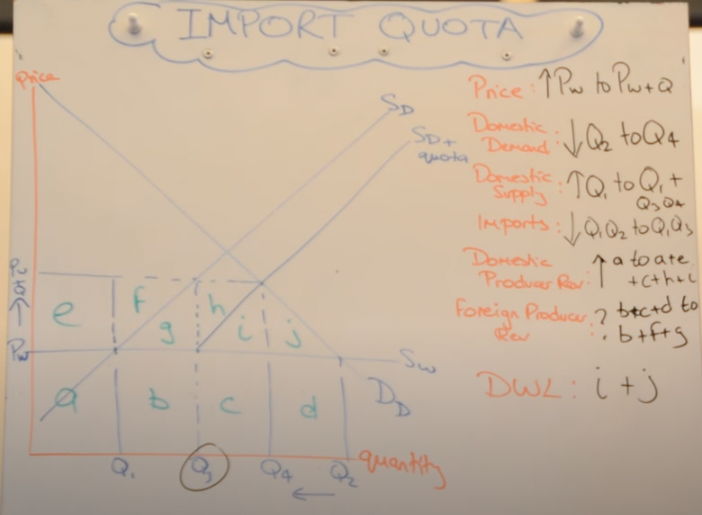 IMPORT QUOTA
Price
SD
SD+
quota
e
f
g
h
i
j
Pw
Sw
a
b
c
d
DD
Q1
Q3
Q4
Q2
quantity
Price: ↑Pw to Pw+Q
Domestic
Demand: ↓Q2 to Q4
Domestic
Supply: ↑Q1 to Q1+
Q3Q4
Imports: ↓Q1Q2 to Q1Q3
Domestic
Producer Rev: ↑ a to a+e
+c+h+i
Foreign Producer
Rev: ? b+c+d to
b+f+g
DWL: i+j